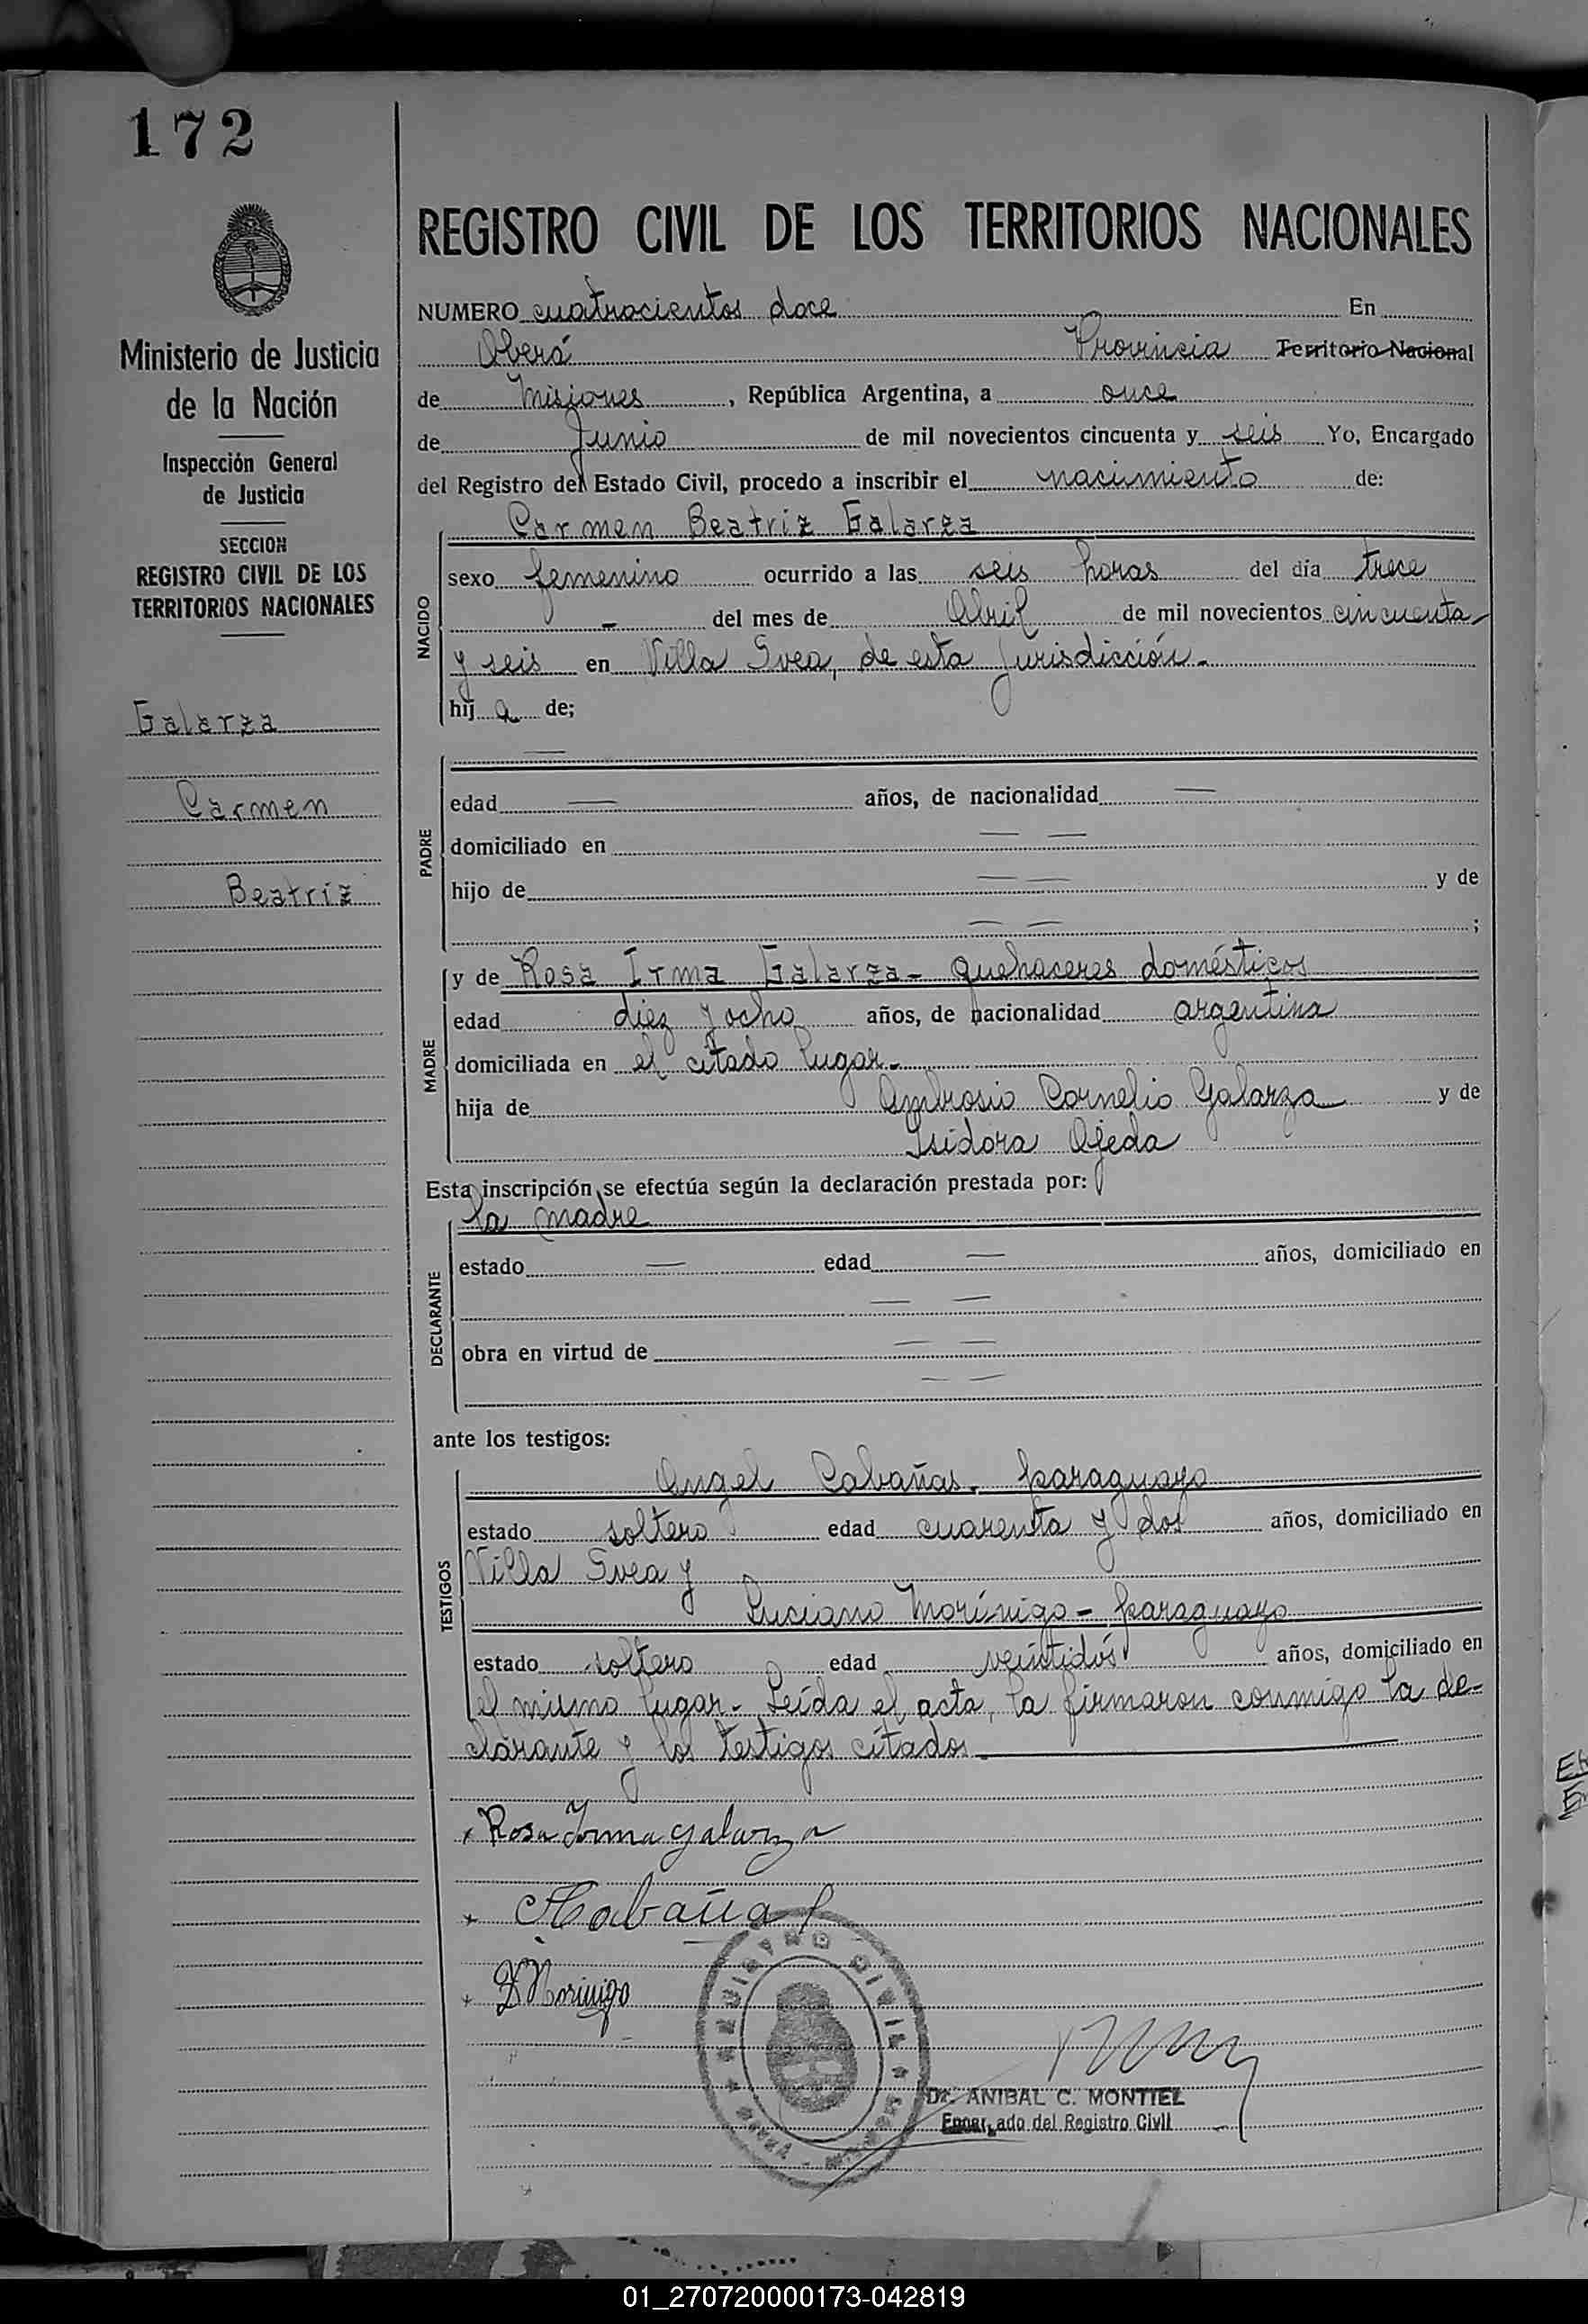 172
REGISTRO CIVIL DE LOS TERRITORIOS NACIONALES
Ministerio de Justicia
de la Nación
Inspección General
de Justicia
SECCION
REGISTRO CIVIL DE LOS
TERRITORIOS NACIONALES
Galarza
Carmen
Beatriz
NUMERO cuatrocientos doce En
Oberá Provincia Territorio Nacional
de Misiones, República Argentina, a once
de Junio de mil novecientos cincuenta y seis Yo, Encargado
del Registro del Estado Civil, procedo a inscribir el nacimiento de:
NACIDO
Carmen Beatriz Galarza
sexo femenino ocurrido a las seis horas del día trece
- del mes de Abril de mil novecientos cincuenta
y seis en Villa Svea, de esta Jurisdicción.-
hij a de;
PADRE
—
edad — años, de nacionalidad —
domiciliado en — —
hijo de — — y de
— — ;
MADRE
y de Rosa Irma Galarza - quehaceres domésticos
edad diez y ocho años, de nacionalidad argentina
domiciliada en el citado lugar.-
hija de Ambrosio Cornelio Galarza y de
Isidora Ojeda
Esta inscripción se efectúa según la declaración prestada por:
DECLARANTE
la madre
estado — edad — años, domiciliado en
— —
obra en virtud de — —
— —
ante los testigos:
TESTIGOS
Angel Cabañas. paraguayo
estado soltero edad cuarenta y dos años, domiciliado en
Villa Svea y
Luciano Morínigo - paraguayo
estado soltero edad veintidós años, domiciliado en
el mismo lugar.- Leída el acta, la firmaron conmigo la de-
clarante y los testigos citados.-
Rosa Irma Galarza
ACabañas
Morinigo
REGISTRO CIVIL
Dr. ANIBAL C. MONTIEL
Encargado del Registro Civil
01_270720000173-042819